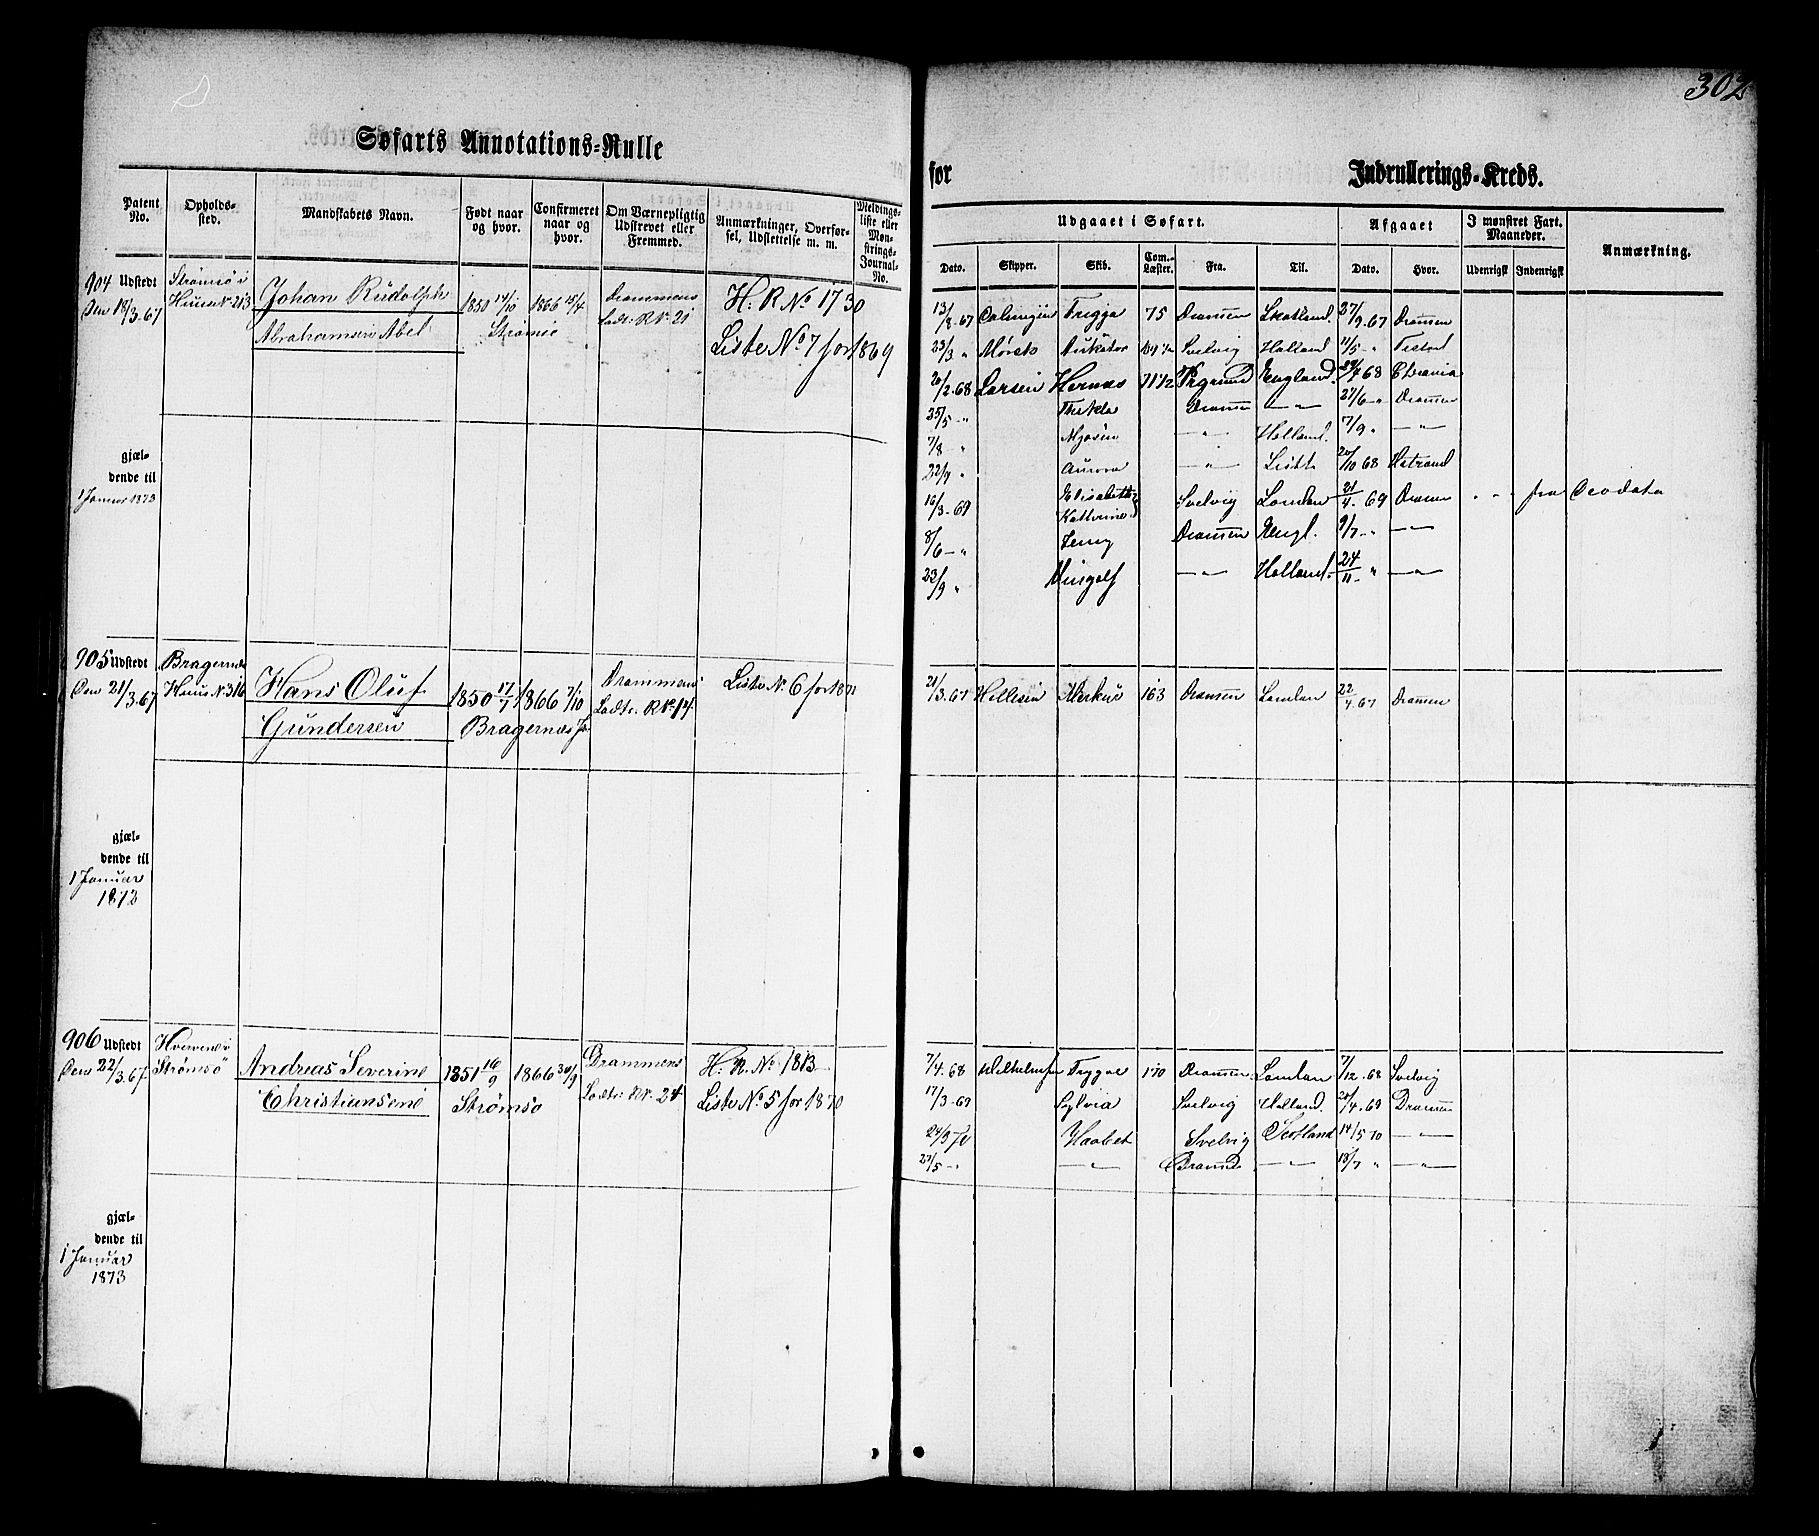 302
Søfarts Annotations-Rulle
for Indrullerings-Kreds.
Patent No.
Opholds-sted.
Mandskabets Navn.
Født naar og hvor.
Confirmeret naar og hvor.
Om Værnepligtig Udskrevet eller Fremmed.
Anmærkninger, Overførsel, Udslettelse m. m.
Meldings-liste eller Mønstrings-Journal-No.
Udgaaet i Søfart.
Afgaaet
I mønstret Fart. Maaneder.
Anmærkning.
Dato. Skipper. Skib. Com. Læster. Fra. Til. Dato. Hvor. Udenrigsk Indenrigsk
904 Udstedt
Den 18/3.67
Strømsø
Huus No 213
Johan Rudolph
Abrahamsen Abel
1850 14/10
1866 15/4
Strømsø
Drammens
Ladtr: R No 21
H: R No 1730
Liste No 7 for 1869
13/8-67 75 Dramen Skotland. 27/9.67 Dramen
23/3 " Svelvig Holland 11/5 - "
20/2.68 Larsen 71 1/2 England. 68
25/5 - " Thekla Dramen — " — 27/6 - " Dramen
7/8 " Mjøsen — " — Holland. 7/9 " — " —
22/9 " Aurora — " — 20/10 68
16/3-69 Elisabeth Kathrine Svelvig London 21/4-69 Dramen " " fra Deodata
8/6 - " Dramen Engl. 9/7 - " — " —
23/9 " Vingolf — " — Holland. 24/11 - " — " —
gjæl-
dende til
1 Januar 1873
905 Udstedt
Den 21/3.67
Bragernæs
Huus No 316
Hans Oluf
Gundersen
1850 17/7
1866 7/10
Bragernæs
Drammens
Ladtr: R No 14
Liste No 6 for 1871
21/3.67 Hellesen Merkur 163 Dramen London 22/4-67 Dramen
gjæl-
dende til
1 Januar
1872
906 Udstedt
Den 22/3.67
Strømsø
Andreas Severin
Christiansen
1851 16/9
1866 30/9
Strømsø
Drammens
Ladtr: R No 24
H: R. No 1813
Liste No 5 for 1870
7/4.68 Wilhelmsen Trygve 170 Dramen London 7/12.68 Svelvig
17/3-69 Sylvia Svelvig Holland. 20/4.69 Dramen
24/3 70 Haabet Svelvig Scotland 14/5 70 — " —
27/5 - " — " — Dramen — " — 18/7 " — " —
gjæl-
dende til
1 Januar
1873